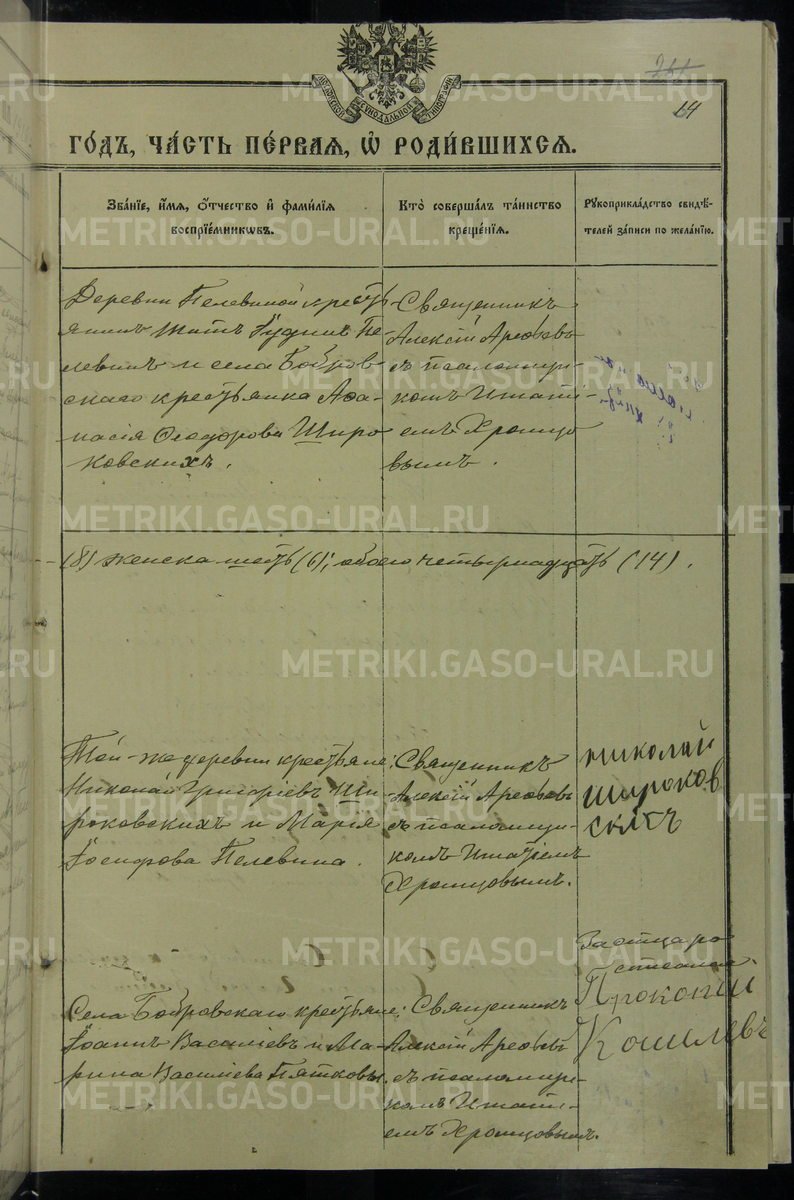 14
ГО́ДЪ, ЧА́СТЬ ПЕ́РВАѦ, Ѡ҆ РОДИ́ВШИХСѦ.
Зва́нїе, и҆́мѧ, ѻ҆́тчество и҆ фами́лїѧ
воспрїе́мникѡвъ.
Кто̀ соверша́лъ та́инство
креще́нїѧ.
Рꙋкоприкла́дство свидѣ́-
телей за́писи по жела́нїю.
Деревни Пелевиной кресть
янинъ Пе-
левинъ и села Бобров
скаго крестьянка Аѳа-
насія Ѳеодорова Широ
ковскихъ.
Священникъ
Алексій Арефьевъ
съ псаломщи-
комъ Игнаті-
емъ Хромцо
вымъ.
(8) женска шесть (6); обоего четырнадцать (14).
Той-же деревни крестьяне:
Николай Григоріевъ Ши-
роковскихъ и Марія
Іосифова Пелевина.
Священникъ
Алексій Арефьевъ
съ псаломщи-
комъ Игнатіемъ
Хромцовымъ.
Николай
Широков
скихъ
Села Бобровскаго крестьяне:
Іоаннъ Василіевъ и Ма-
рина Василіева Пятковы.
Священникъ
Алексій Арефьевъ
съ псаломщи-
комъ Игнаті-
емъ Хромцовымъ.
За отца ро
Прокопій
Кошелевъ
METRIKI.GASO-URAL.RU